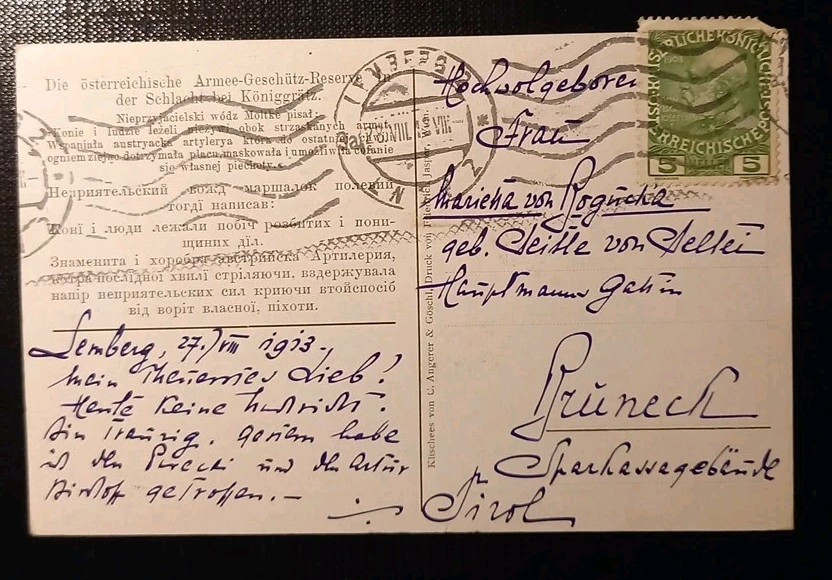 Die österreichische Armee-Geschütz-Reserve in
der Schlacht bei Königgrätz.
Nieprzyjacielski wódz Moltke pisał:
Konie i ludzie leżeli nieżywi obok strzaskanych armat.
Wspaniała austryacka artylerya która do ostatniej chwili
ogniem
dotrzymała placu, maskowała i umożliwiła cofanie
się własnej piechoty.
Неприятельский вождь маршалок полевий
тогдї написав:
Конї і люди лежали побіч розбитих і пони-
щиних дїл.
Знаменита і хоробра австрийска Артилерия,
котра до послїдної хвилї стріляючи, вздержувала
напір неприятельских сил криючи втойспосіб
від воріт власної, піхоти.
Lemberg, 27./VIII 1913.
Mein Theuerstes Lieb!
Heute keine Nachricht.
Bin Traurig. Gestern habe
ich den und den Artur
getroffen.—
Klischees von C. Angerer & Göschl, Druck von Friedrich Jasper, Wien.
LEMBERG 2
LWÓW 2
VIII
5 HELLER 5
Hochwolgeboren
Frau
Marietta von Rogucka
geb. von
Hauptmanns Gattin
Bruneck
Sparkassagebäude
Tirol